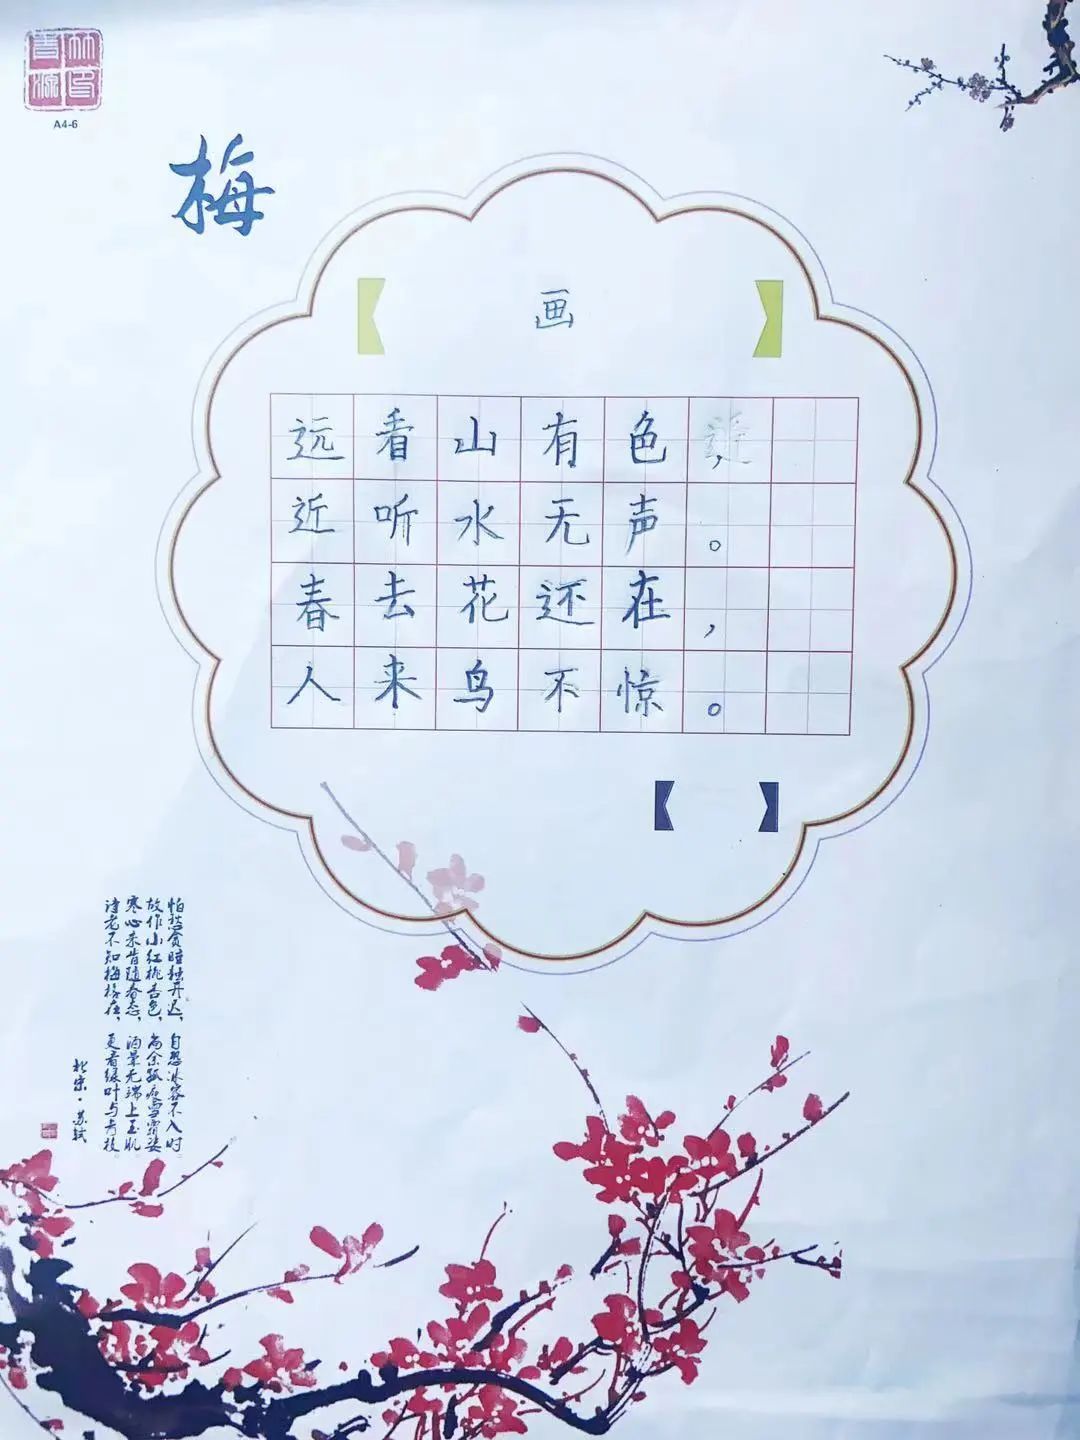 A4-6
梅
画
远看山有色，
近听水无声。
春去花还在，
人来鸟不惊。
怕愁贪睡独开迟，自恐冰容不入时。
故作小红桃杏色，尚余孤瘦雪霜姿
寒心未肯随春态，酒晕无端上玉肌。
诗老不知梅格在，更看绿叶与青枝。
北宋·苏轼